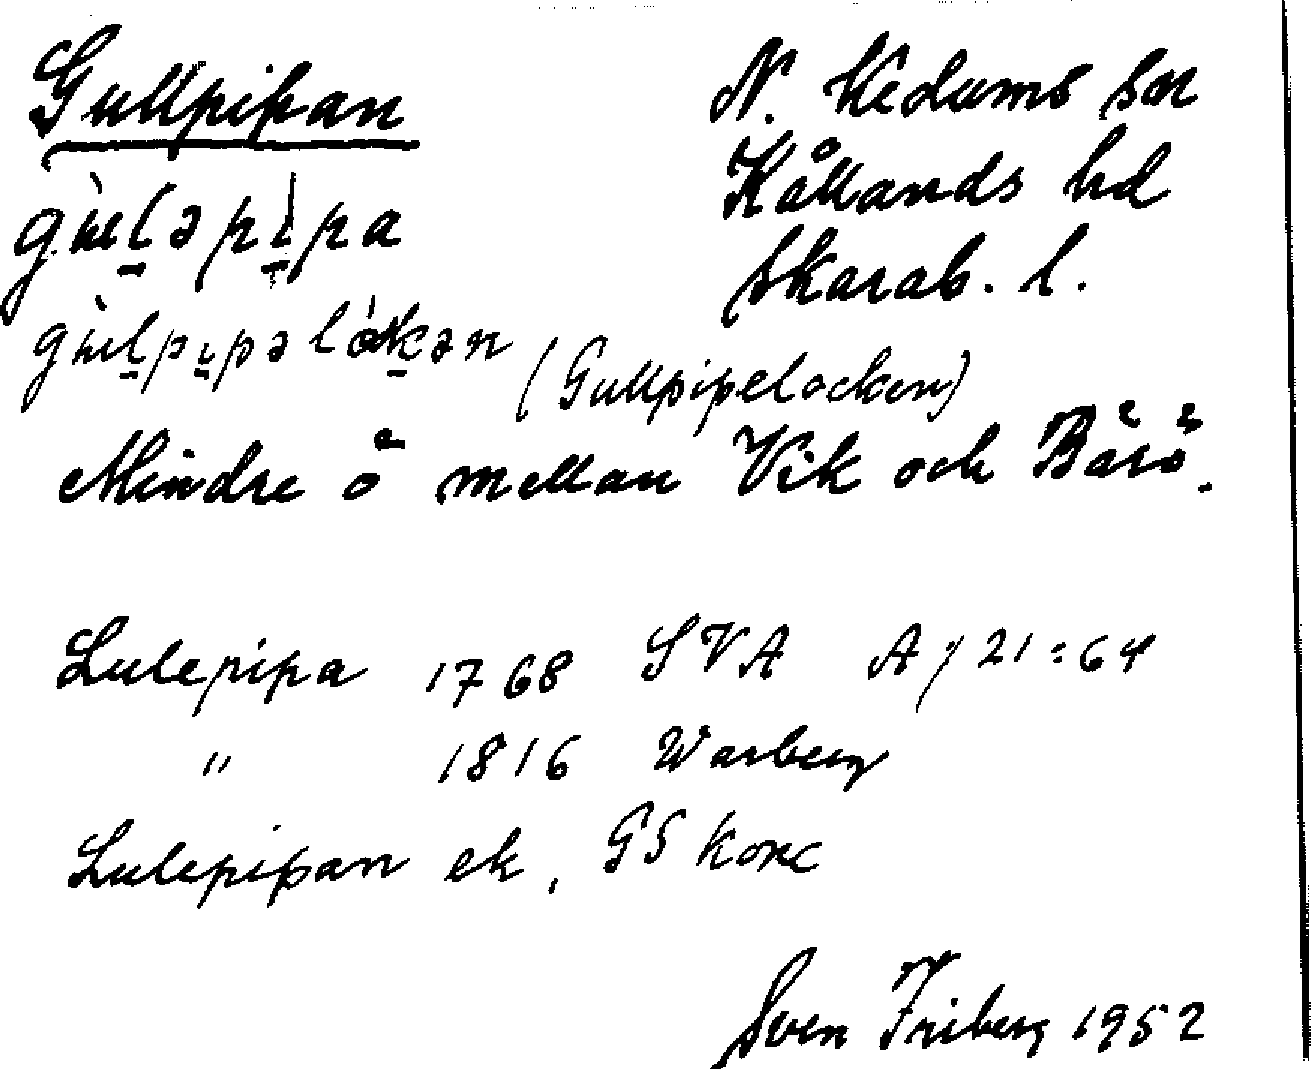 Gullpipan
N. Kedums sn
Kållands hd
Skarab. l.
(Gullpipelocken)
Mindre ö mellan Vik och Bärö.
Lulepipa 1768 SVA A/21:64
" 1816 Warberg
Lulepipan ek, GS konc
Sven Friberg 1952